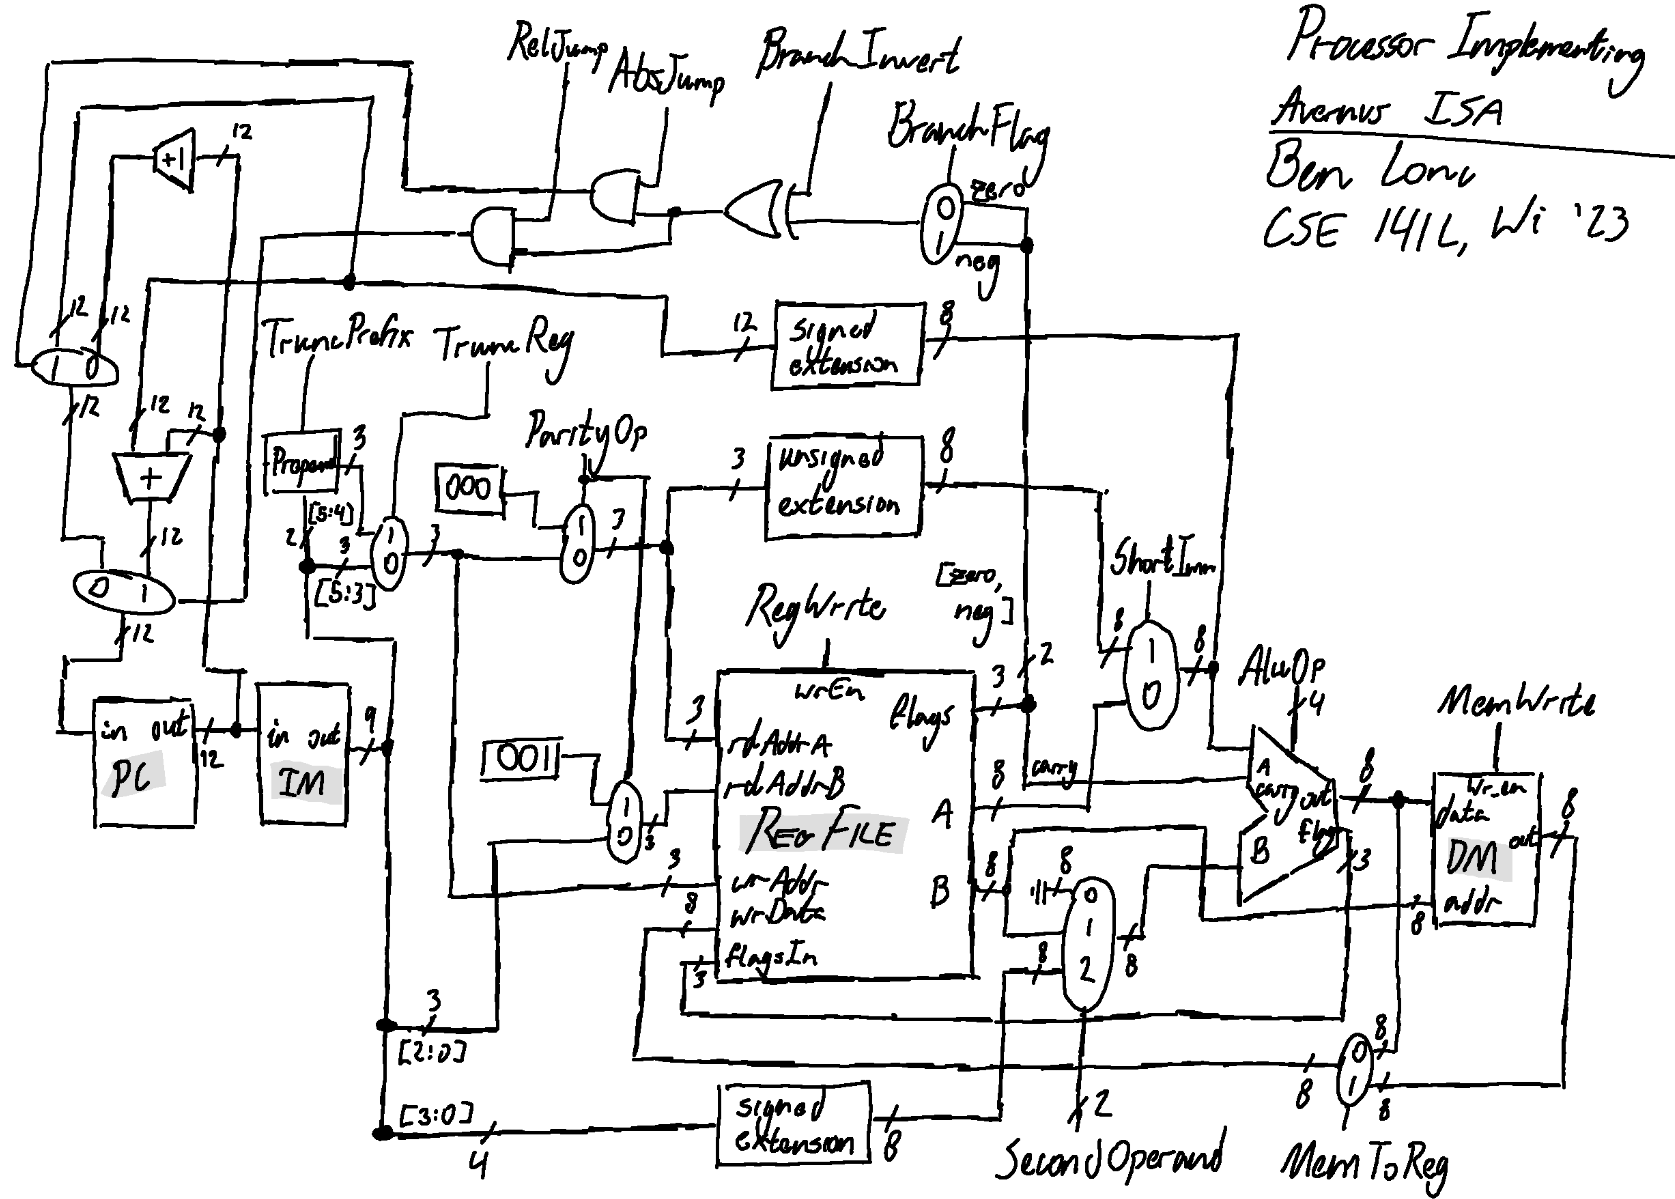 Processor Implementing
Avernus ISA
CSE 141L, Wi '23
RelJump
AbsJump
BranchInvert
BranchFlag
zero
0
1
neg
+1
12
12
12
1 0
12
12
12
+
12
0 1
12
TruncPrefix
TruncReg
ParityOp
3
[5:4]
2
3
[5:3]
1
0
3
000
1
0
3
12
signed
extension
8
3
unsigned
extension
8
[zero,
neg]
2
ShortImm
8
1
0
8
RegWrite
wrEn
flags
3
3
rdAddrA
rdAddrB
REG FILE
A
B
wrAddr
wrData
flagsIn
3
8
3
001
1
0
3
in out
PC
12
in out
IM
9
carry
8
8
8
0
1
2
8
8
AluOp
4
A
carry
out
flags
B
8
3
MemWrite
wr_en
data
out
DM
addr
8
8
3
[2:0]
[3:0]
4
signed
extension
8
2
SecondOperand
8
0
1
8
8
MemToReg